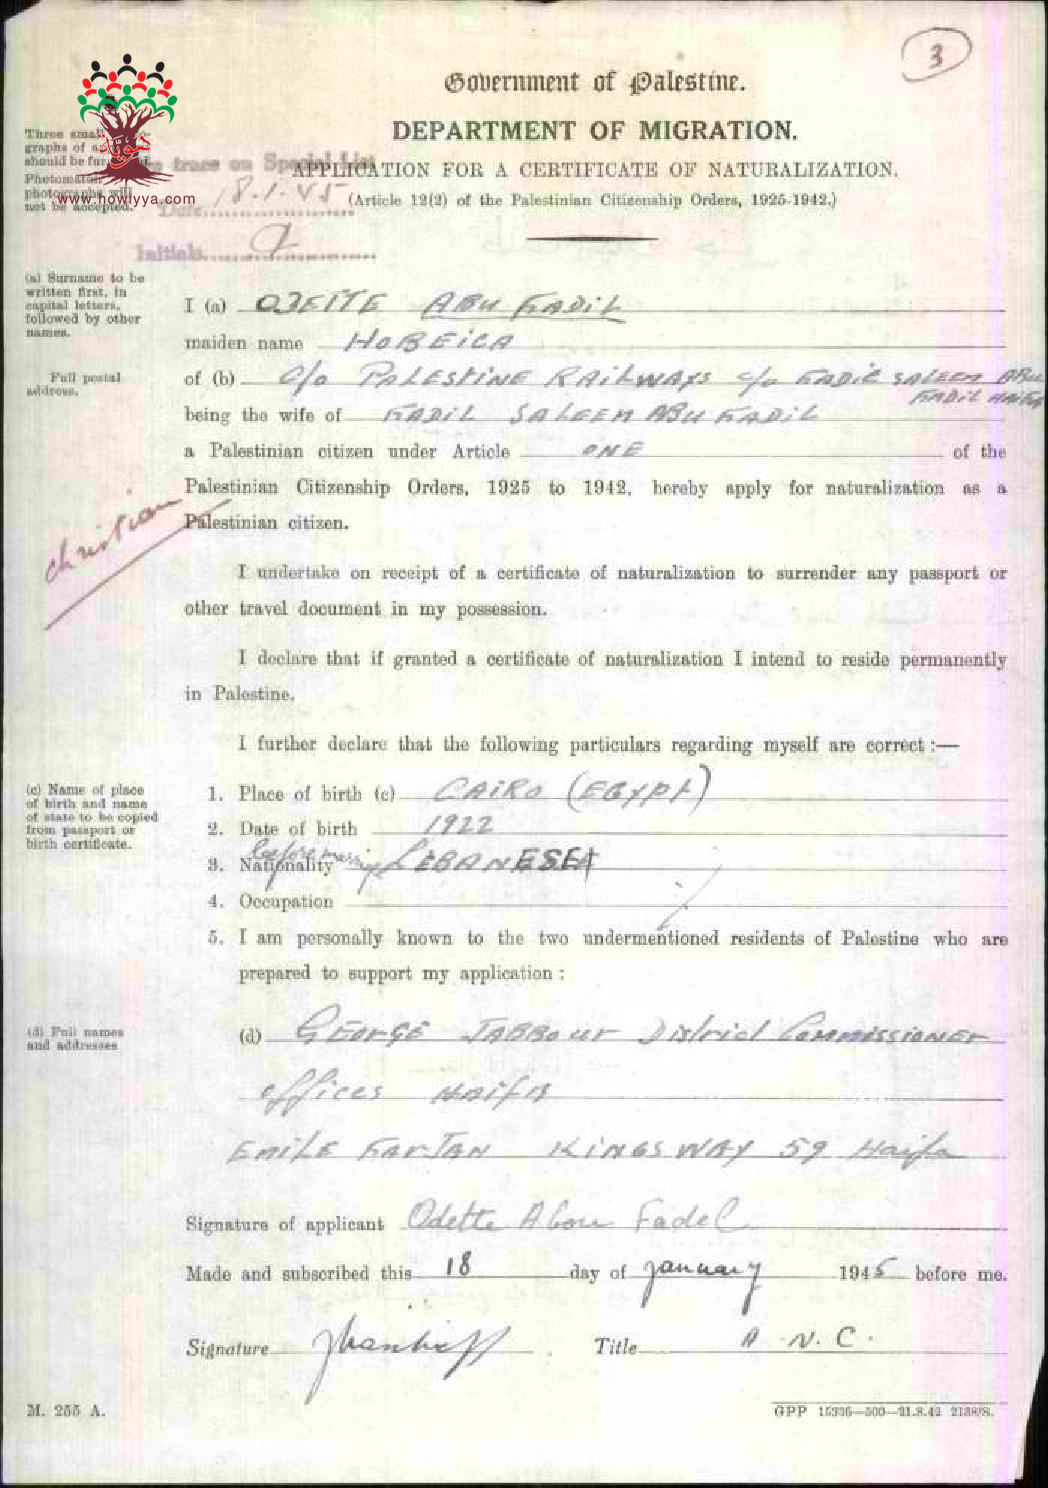 3
Government of Palestine.
DEPARTMENT OF MIGRATION.
APPLICATION FOR A CERTIFICATE OF NATURALIZATION.
(Article 12(2) of the Palestinian Citizenship Orders, 1925-1942.)
Three small
graphs of
should be
not be accepted.
www.howiyya.com
trace on Special List
Date 18.1.45
Initials
(a) Surname to be
written first, in
capital letters,
followed by other
names.
I (a) ODETTE ABU FADIL
maiden name HOBEICA
Full postal
address.
of (b) C/o PALESTINE RAILWAYS c/o FADIL SALEEM ABU
FADIL HAIFA
being the wife of FADIL SALEEM ABU FADIL
a Palestinian citizen under Article ONE of the
Palestinian Citizenship Orders, 1925 to 1942, hereby apply for naturalization as a
Palestinian citizen.
christian
I undertake on receipt of a certificate of naturalization to surrender any passport or
other travel document in my possession.
I declare that if granted a certificate of naturalization I intend to reside permanently
in Palestine.
I further declare that the following particulars regarding myself are correct :—
(c) Name of place
of birth and name
of state to be copied
from passport or
birth certificate.
1. Place of birth (c) CAIRO (EGYPT)
2. Date of birth 1922
before marriage
3. Nationality LEBANESE
4. Occupation
5. I am personally known to the two undermentioned residents of Palestine who are
prepared to support my application :
(d) Full names
and addresses
(d) GEORGE JABBOUR District Commissioner
offices HAIFA
EMILE KINGSWAY 59 Haifa
Signature of applicant Odette Abou Fadel
Made and subscribed this 18 day of january 1945 before me.
Signature Title A. N. C.
M. 255 A.
GPP 15336—500—21.8.42 2138/S.